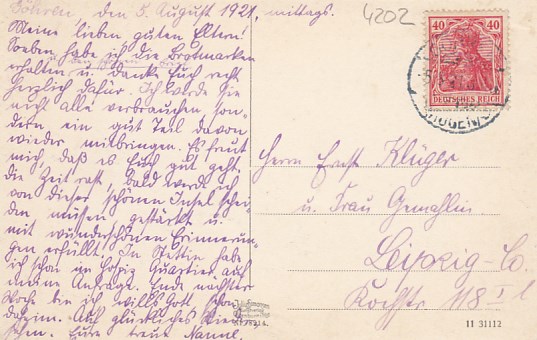 Göhren, den 5. August 1921, mittags.
Meine lieben guten Eltern!
Soeben habe ich die Brotmarken
erhalten u. danke Euch recht
herzlich dafür. Ich werde sie
nicht alle verbrauchen, son-
dern ein gut Teil davon
wieder mitbringen. Es freut
mich, daß es Euch gut geht.
die Zeit rast, bald werde ich
von dieser schönen Insel schei-
den müssen, gestärkt u.
mit wunderschönen Erinnerun-
gen erfüllt. In Stettin habe
ich schon im Hospiz Quartier auf
meine Anfrage. Ende nächster
Woche bin ich, will's Gott, schon
daheim. Auf glückliches Wieder-
sehen. Eure treue Nanni.
4202
40 40
DEUTSCHES REICH
Herrn Ernst Klüger
u. Frau Gemahlin
Leipzig-Co.
Kochstr. 118 I l
11 31112